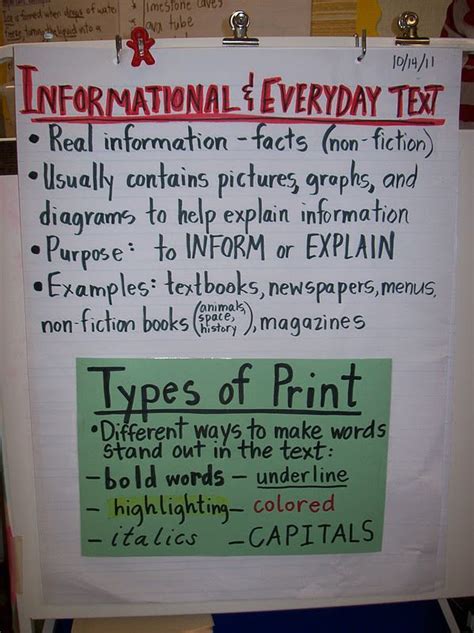 Ice is formed when drops of water
freeze, turning liquid into a
limestone caves
10/14/11
INFORMATIONAL & EVERYDAY TEXT
• Real information - facts (non-fiction)
• Usually contains pictures, graphs, and
diagrams to help explain information
• Purpose: to INFORM or EXPLAIN
• Examples: textbooks, newspapers, menus,
non-fiction books (animals, space, history), magazines
Types of Print
• Different ways to make words
stand out in the text:
- bold words - underline
- highlighting - colored
- italics - CAPITALS